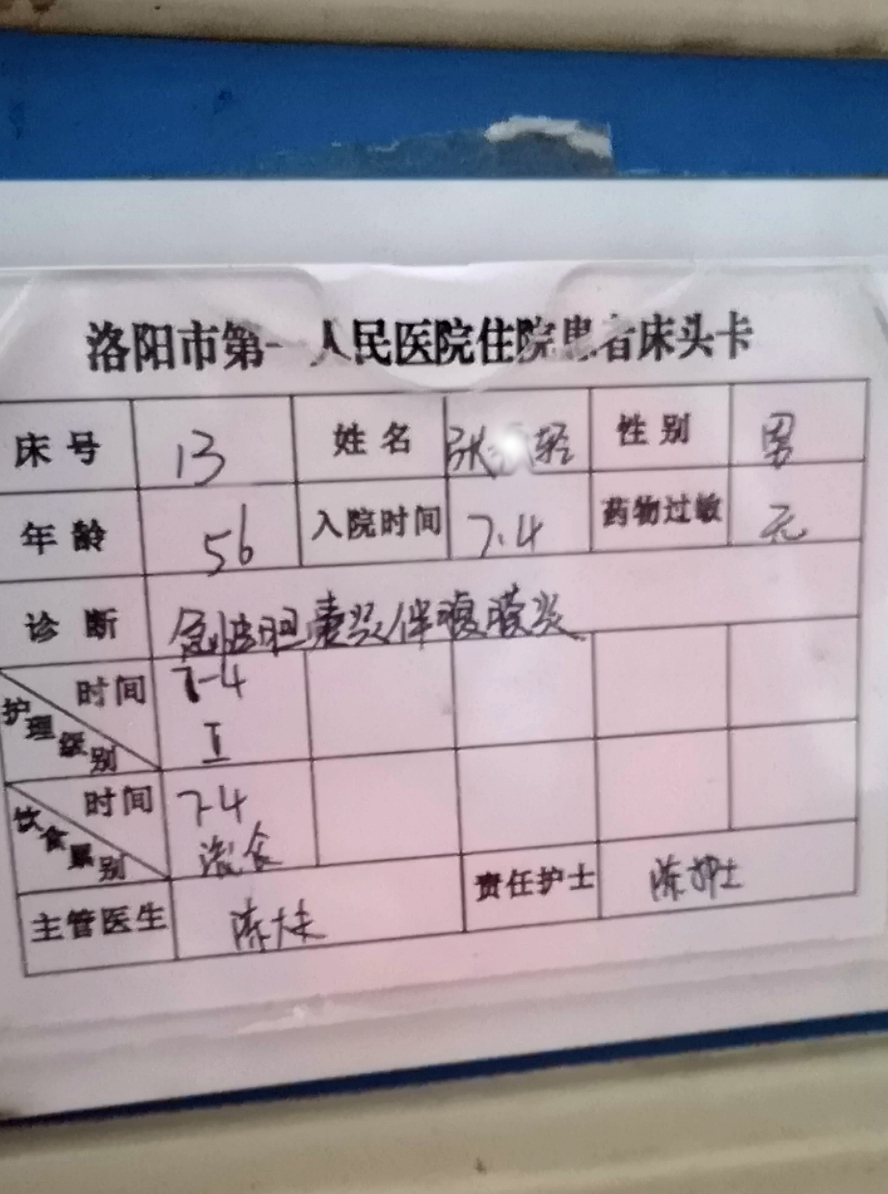 洛阳市第一人民医院住院患者床头卡
床号 13 姓名 张 轻 性别 男
年龄 56 入院时间 7.4 药物过敏 无
诊断 急性胆囊炎伴腹膜炎
护理级别 时间 7-4
I
饮食累别 时间 7-4
流食
主管医生 陈大夫 责任护士 陈护士